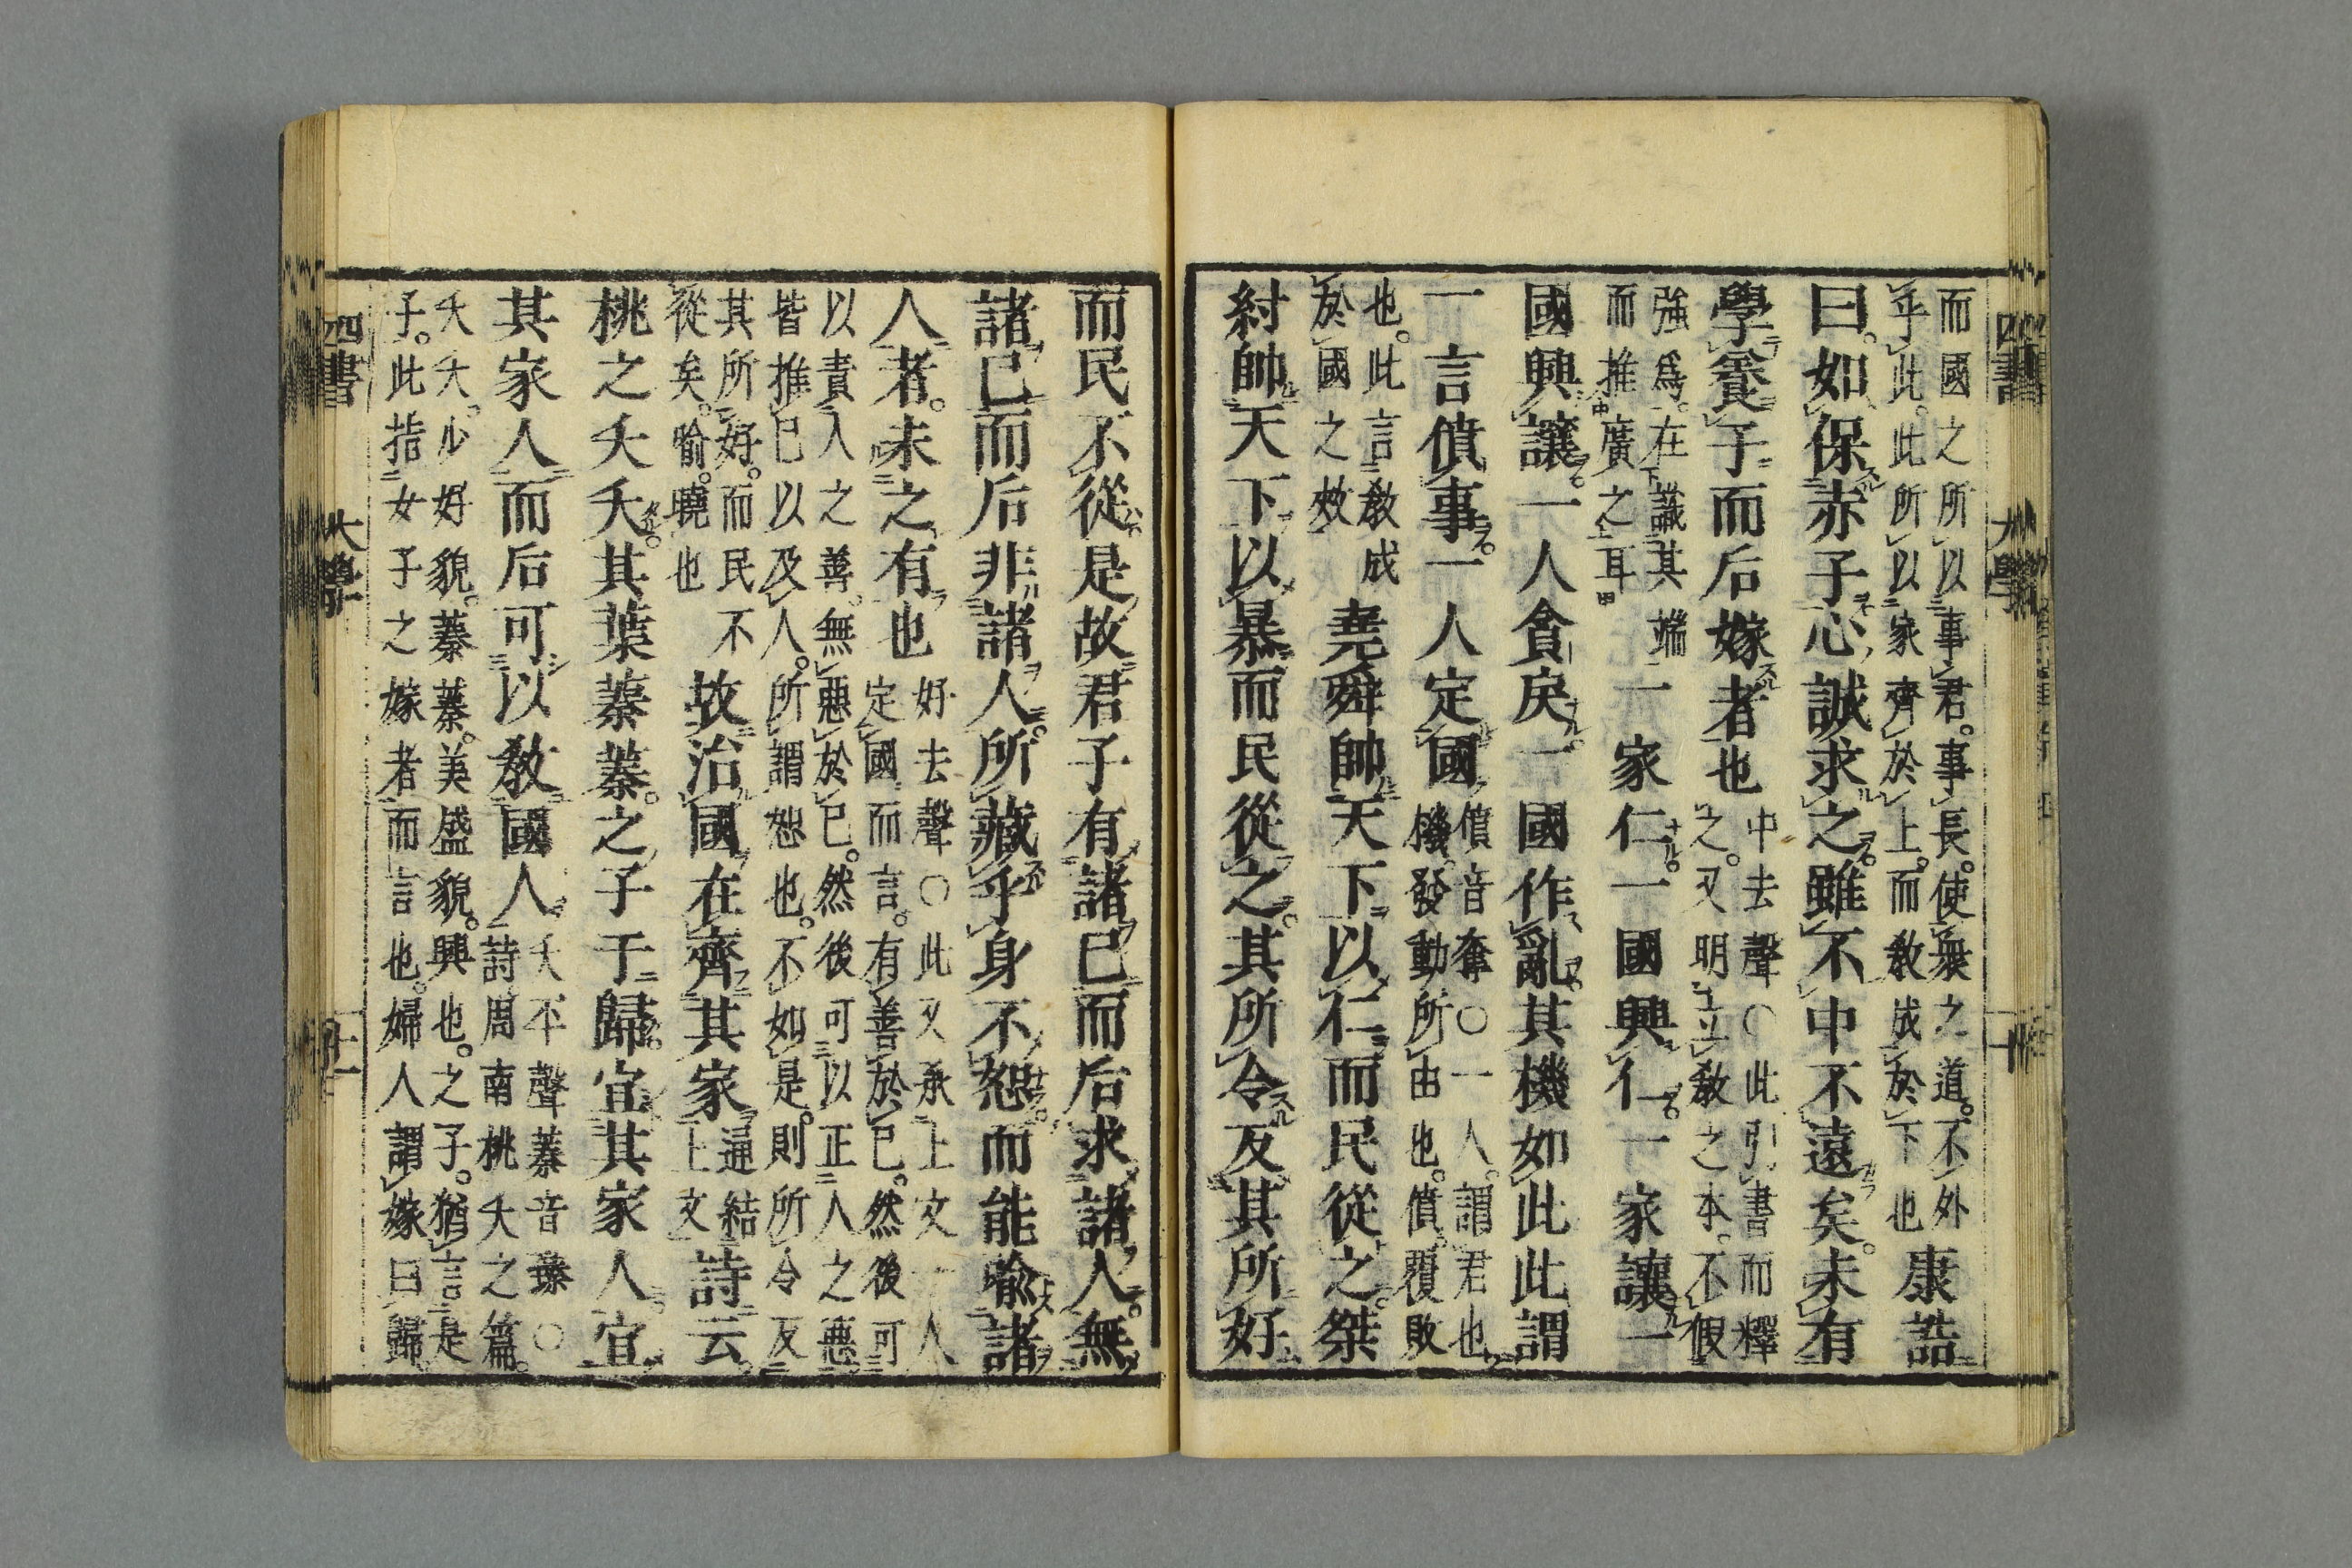 四書 大學 十
而國之所以事君。事長。使衆之道。不外
乎此。此所以家齊於上。而教成於下也
康誥
曰。如保赤子。心誠求之。雖不中不遠矣。未有
學養子而后嫁者也
中去聲○此引書而釋
之。又明立教之本。不假
強爲。在識其端
而推廣之耳
一家仁。一國興仁。一家讓。一
國興讓。一人貪戾。一國作亂。其機如此此謂
一言僨事。一人定國
僨音奮○一人。謂君也
機。發動所由也。僨。覆敗
也。此言教成
於國之效
堯舜帥天下以仁而民從之。桀
紂帥天下以暴而民從之。其所令反其所好
而民不從。是故君子有諸己而后求諸人。無
諸己而后非諸人。所藏乎身不恕。而能喻諸
人者。未之有也
好去聲○此又承上文一人
定國而言。有善於己。然後可
以責人之善。無惡於己。然後可以正人之惡。
皆推己以及人。所謂恕也。不如是。則所令反
其所好。而民不
從矣。喻。曉也
故治國在齊其家
通結
上文
詩云。
桃之夭夭。其葉蓁蓁。之子于歸。宜其家人。宜
其家人而后可以教國人
夭平聲蓁音臻○
詩周南桃夭之篇。
夭夭。少好貌。蓁蓁。美盛貌。興也。之子。猶言是
子。此指女子之嫁者而言也。婦人謂嫁曰歸
四書 大學 十一